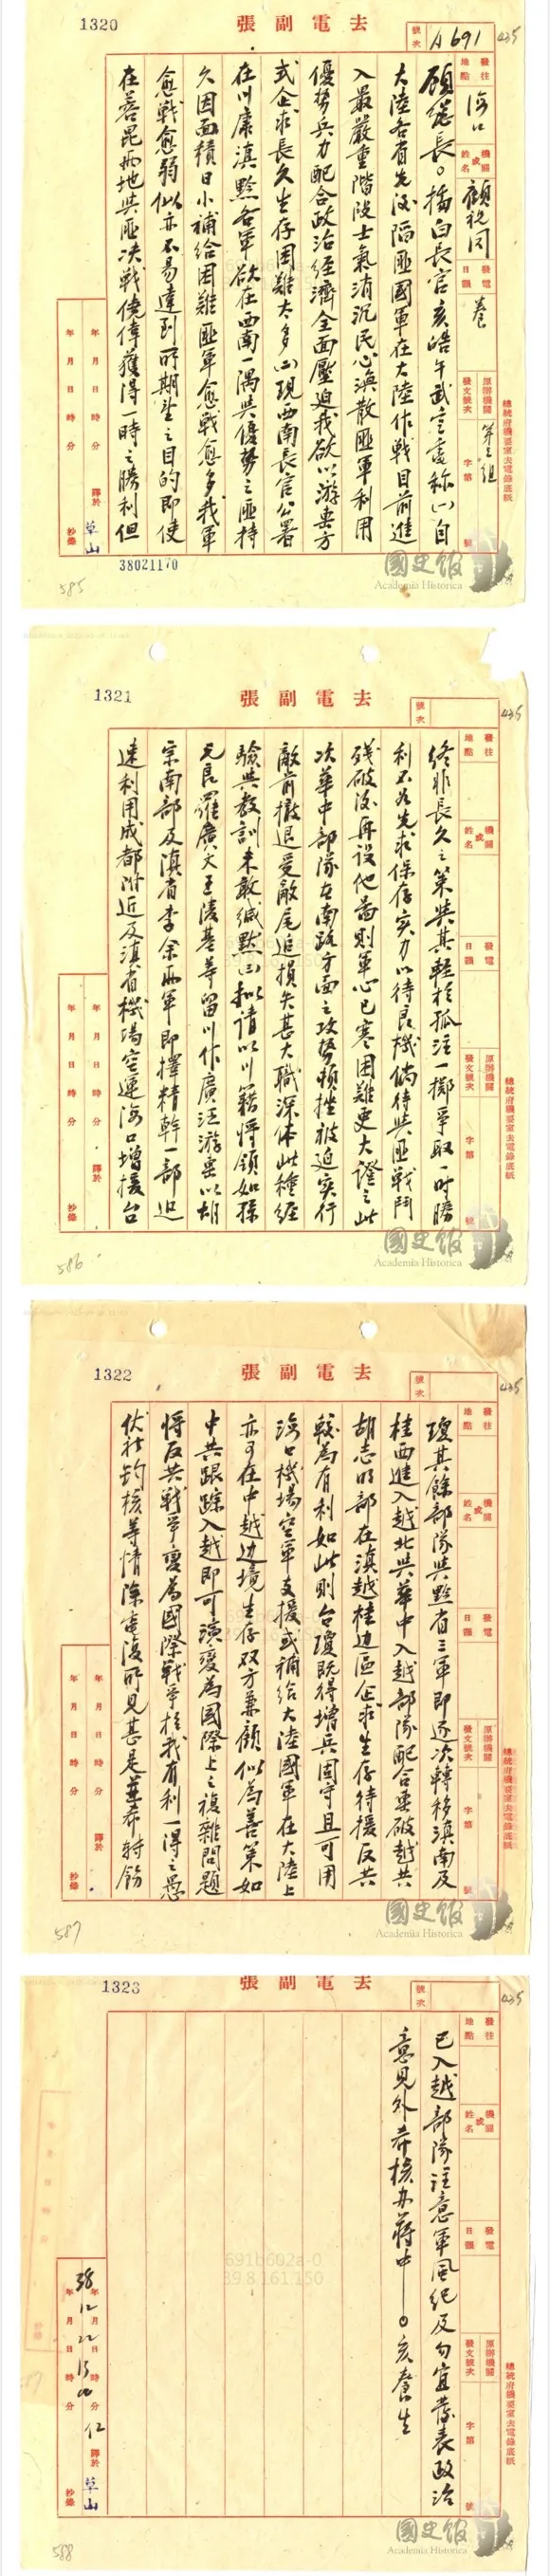 1320
去電副張
號次 A691
435
發往地點 海口
機關或姓名 顧祝同
發電日韻 養
原辦機關 第二組
發文號次 字第 號
總統府機要室去電錄底紙
顧總長。據白長官亥皓午武定電稱(一)自
大陸各省先後陷匪國軍在大陸作戰目前進
入最嚴重階段士氣消沉民心渙散匪軍利用
優勢兵力配合政治經濟全面壓迫我欲以游擊方
式企求長久生存困難太多(二)現西南長官公署
在川康滇黔各軍欲在西南一隅與優勢之匪持
久因面積日小補給困難匪軍愈戰愈多我軍
愈戰愈弱似亦不易達到所期望之目的即使
在蓉昆兩地與匪決戰僥倖獲得一時之勝利但
年月日時分 譯於 草山
年月日時分 抄錄
38021170
585
國史館
Academia Historica
1321
去電副張
號次
435
發往地點
機關或姓名
發電日韻
原辦機關
發文號次 字第 號
總統府機要室去電錄底紙
終非長久之策與其輕於孤注一擲爭取一時勝
利不如先求保存實力以待良機倘待與匪戰鬥
殘破後再設他圖則軍心已寒困難更大證之此
次華中部隊在南路方面之攻勢頓挫被迫實行
敵前撤退受敵尾追損失甚大職深体此種經
驗與教訓未敢緘默(三)擬請以川籍將領如孫
元良羅廣文王陵基等留川作廣泛游擊以胡
宗南部及滇省李余兩軍即擇精幹一部迅
速利用成都附近及滇省機場空運海口增援台
年月日時分 譯於
年月日時分 抄錄
586
國史館
Academia Historica
1322
去電副張
號次
435
發往地點
機關或姓名
發電日韻
原辦機關
發文號次 字第 號
總統府機要室去電錄底紙
瓊其餘部隊與黔省三軍即逐次轉移滇南及
桂西進入越北與華中入越部隊配合擊破越共
胡志明部在滇越桂邊區企求生存待援反共
較為有利如此則台瓊既得增兵固守且可用
海口機場空軍支援或補給大陸國軍在大陸上
亦可在中越边境生存双方兼顧似為善策如
中共跟踪入越即可演变為國際上之複雜問題
將反共戰爭變為國際戰爭於我有利一得之愚
伏祈鈞核等情除電復所見甚是並希特飭
年月日時分 譯於
年月日時分 抄錄
587
國史館
Academia Historica
1323
去電副張
號次
435
發往地點
機關或姓名
發電日韻
原辦機關
發文號次 字第 號
總統府機要室去電錄底紙
已入越部隊注意軍風紀及勿宜發表政治
意見外希核办蔣中一。亥養生
38年12月22日15時00分 仁 譯於 草山
年月日時分 抄錄
691b602a-0
39.8.161.150
588
國史館
Academia Historica